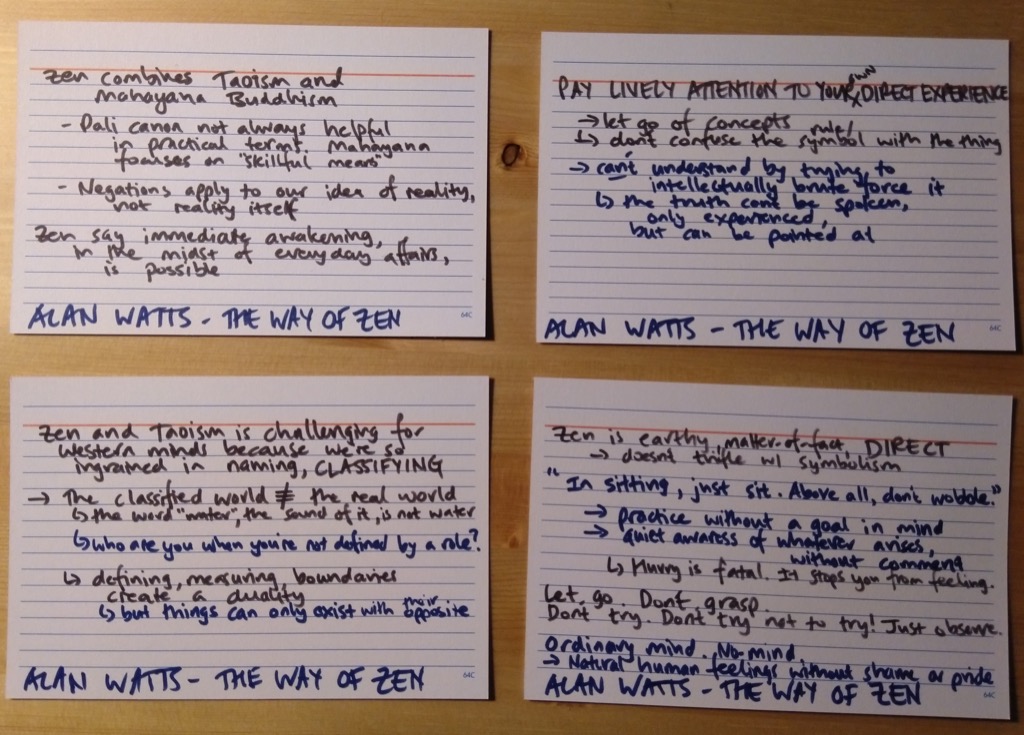 Zen combines Taoism and
Mahayana Buddhism
- Pali canon not always helpful
in practical terms. Mahayana
focuses on "skillful means"
- Negations apply to our idea of reality,
not reality itself
Zen say immediate awakening,
in the midst of everyday affairs,
is possible
ALAN WATTS - THE WAY OF ZEN
64C
PAY LIVELY ATTENTION TO YOUR OWN DIRECT EXPERIENCE
→ let go of concepts rules
↳ don't confuse the symbol with the thing
→ can't understand by trying to
intellectually brute force it
↳ the truth can't be spoken,
only experienced,
but can be pointed at
ALAN WATTS - THE WAY OF ZEN
64C
Zen and Taoism is challenging for
Western minds because we're so
ingrained in naming, CLASSIFYING
→ The classified world ≠ the real world
↳ the word "water", the sound of it, is not water
↳ who are you when you're not defined by a role?
↳ defining, measuring, boundaries
create a duality
↳ but things can only exist with their opposite
ALAN WATTS - THE WAY OF ZEN
64C
Zen is earthy, matter-of-fact, DIRECT
→ doesn't trifle w/ symbolism
"In sitting, just sit. Above all, don't wobble."
→ practice without a goal in mind
→ quiet awareness of whatever arises,
without comment
↳ Hurry is fatal. It stops you from feeling.
Let go. Don't grasp.
Don't try. Don't try not to try! Just observe.
Ordinary mind. No mind.
→ Natural human feelings without shame or pride
ALAN WATTS - THE WAY OF ZEN
64C